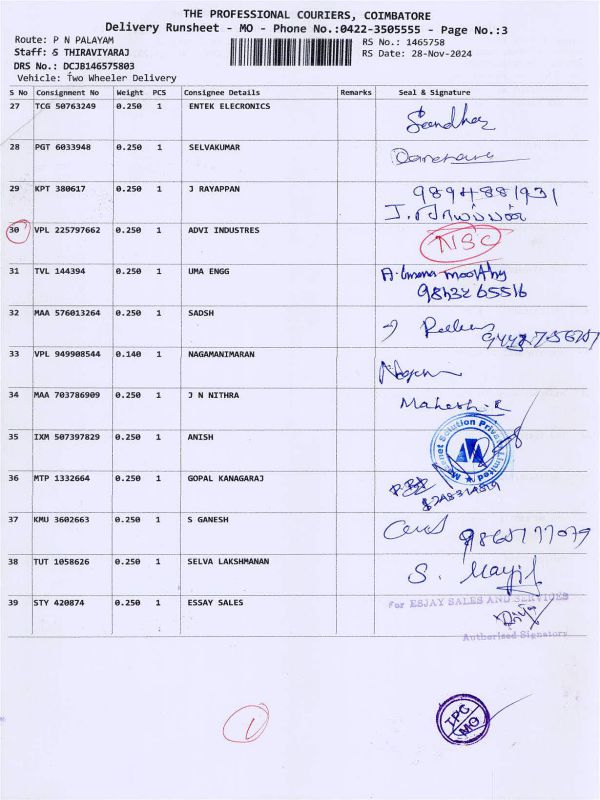 THE PROFESSIONAL COURIERS, COIMBATORE
Delivery Runsheet - MO - Phone No.:0422-3505555 - Page No.:3
Route: P N PALAYAM RS No.: 1465758
Staff: S THIRAVIYARAJ RS Date: 28-Nov-2024
DRS No.: DCJB146575803
Vehicle: Two Wheeler Delivery
S No Consignment No Weight PCS Consignee Details Remarks Seal & Signature
27 TCG 50763249 0.250 1 ENTEK ELECRONICS
28 PGT 6033948 0.250 1 SELVAKUMAR
29 KPT 380617 0.250 1 J RAYAPPAN 9894881931
30 VPL 225797662 0.250 1 ADVI INDUSTRES NSC
31 TVL 144394 0.250 1 UMA ENGG
32 MAA 576013264 0.250 1 SADSH
33 VPL 949908544 0.140 1 NAGAMANIMARAN
34 MAA 703786909 0.250 1 J N NITHRA Mahesh.R
35 IXM 507397829 0.250 1 ANISH
36 MTP 1332664 0.250 1 GOPAL KANAGARAJ
37 KMU 3602663 0.250 1 S GANESH
38 TUT 1058626 0.250 1 SELVA LAKSHMANAN
39 STY 420874 0.250 1 ESSAY SALES For ESJAY SALES AND SERVICES
Authorised Signatory
1
TPC
MO